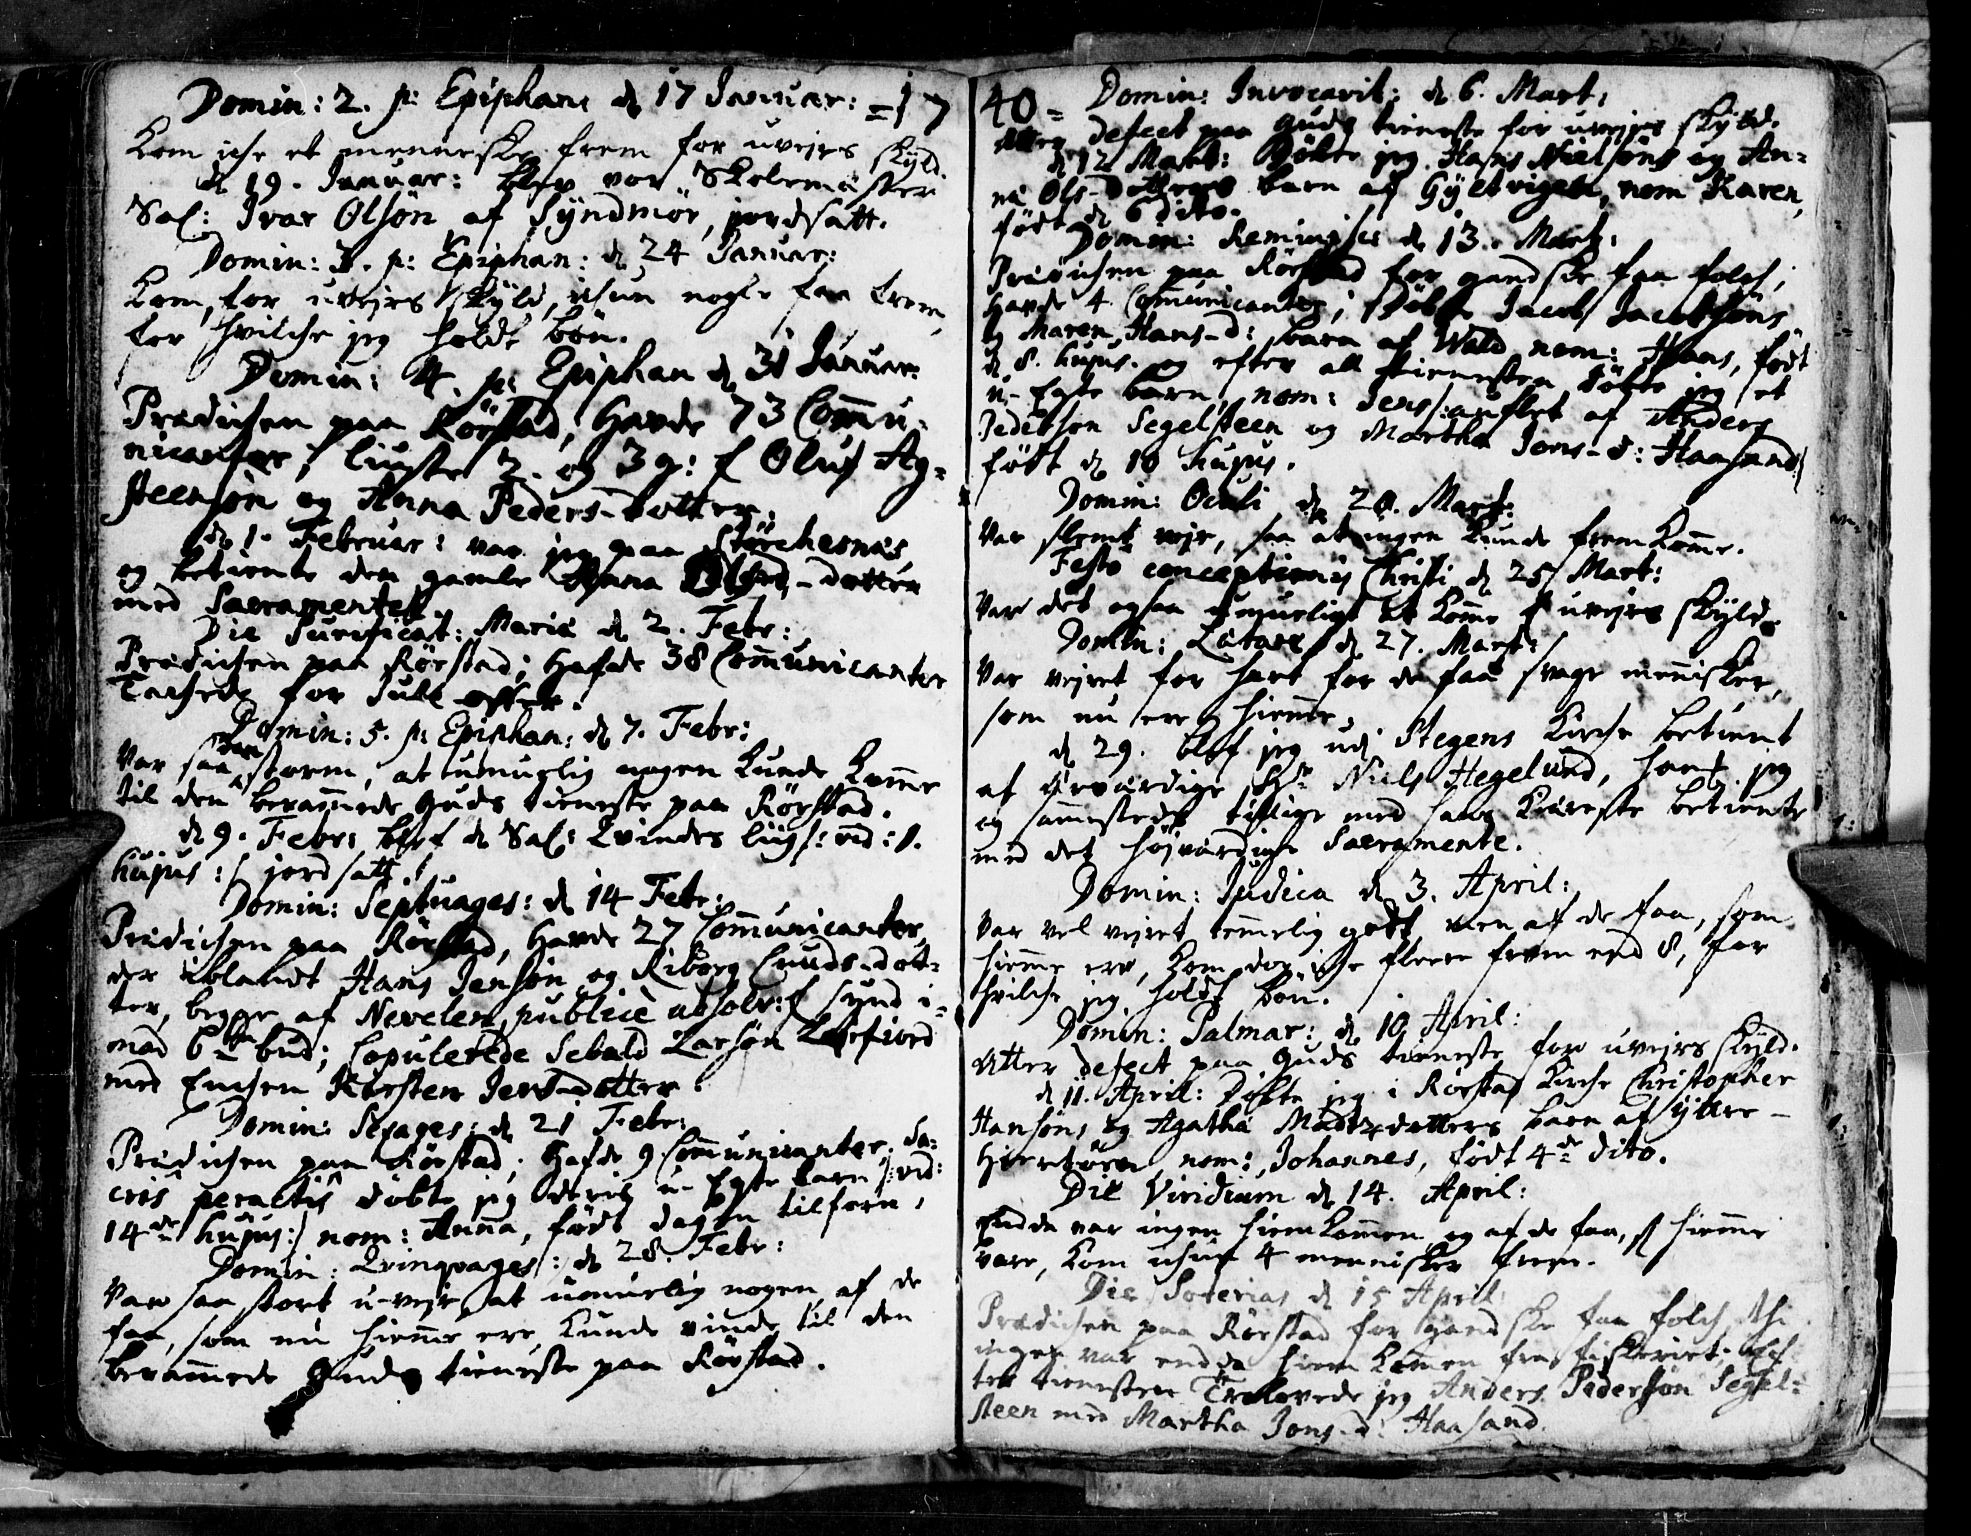 Domin: 2. p: Epiphan: d 17 Januar: = 17
Kom iche et menniske frem for uvejrs skyld.
d 19. Januar: blev vor Skolemester
Sal: Ivar Olsön af Syndmör, jordsatt.
Domin: 3. p: Epiphan: d 24 Januar:
Kom, for uvejrs skyld, ichun nogle faa frem,
for hvilche jeg holdt bön.
Domin: 4. p: Epiphan d 31 Januar:
Prædichen paa Rörstad, havde 73 Commu-
nicanter; liuste 2. og 3 g: f Oluf Ag-
steensön og Anna Peders-dotter.
d 1. Februar: var jeg paa Störchesnæs
og betiente den gamle Anna Olss-dotter
med Sacramentet.
Die Purificat: Mariæ d 2. Febr:
Prædichen paa Rörstad; hafde 38 Communicanter
Tachede for Jule offer.
Domin: 5. p: Epiphan: d 7. Febr:
Var saadan storm, at umuglig nogen kunde komme
til den berammede Guds tieneste paa Rörstad.
d 9. Febr: blef d Sal: Qvindes liig /: vid: 1.
hujus :/ jordsatt.
Domin: Septuages: d 14 Febr:
Prædichen paa Rörstad, havde 27 Communicanter,
der iblandt Hans Jensön og Riborg Cnuds-dot-
ter, begge af Nevelen, publicè absolv: f synd i-
mod 6te bud; Copulerede Sebald Larsön Leerfiord
med Enchen Kirsten Jens-dotter.
Domin: Sexages: d 21 Febr:
Prædichen paa Rörstad; hafde 9 Communicanter. Sa-
cris peractis döbte jeg deris u-Egte barn /: vid:
14de hujus :/ nom: Anna, födt dagen tilforn.
Domin: Qvinqvages: d 28. Febr:
Var saa stort u-vejr, at umuelig nogen af de
faa, som nu hiemme ere, kunde vinde til den
berammede Guds tieneste paa Rörstad.
40 = Domin: Invocavit: d 6. Mart:
Atter defect paa Guds tieneste for uvejrs skyld.
d 12 Mart: Döbte jeg Hans Nielsöns og An-
na Ols-dotters barn af Gyltvigen, nom Karen,
födt d 6 dito.
Domin: Reminisc: d 13. Mart:
Prædichen paa Rörstad for gandske faa folch,
havde 4. Communicanter; Döbte Jacob Jacobsöns
og Maren Hans-d: barn af Wald nom: Hans, födt
d 8. hujus. og efter all tienesten döbte jeg et
u-Egte barn, nom: Jens /: auflet af Anders
Pedersön Segelsteen og Martha Jons-d: Haasand :/
födt d 10 hujus.
Domin: Oculi d 20. Mart:
Var slemt vejr, saa at ingen kunde fremkomme.
Festo conceptionis Christi d 25 Mart:
Var det ogsaa umueligt at komme f uvejrs skyld.
Domin: Lætare d 27. Mart:
Var vejret for hart for de faa svage mennisker,
som nu ere hiemme.
d 29. blef jeg udi Stegens Kirche betient
af ærværdige Hr Niels Hegelund, hans jeg
og sammesteds tillige med hans Kiæreste betiente
med det højværdige Sacramente.
Domin: Judica d 3. April:
Var vel vejret temmelig gott, men af de faa, som
hiemme ere, kom dog iche fleere frem end 8, for
hvilche jeg holdt bön.
Domin: Palmar: d 10 April:
Atter defect paa Guds tieneste for uvejrs skyld.
d 11. April: Döbte jeg i Rörstad Kirche Christopher
Hansöns og Agatha Madtzdotters barn af Yttre-
Hiertöen, nom: Johannes, födt 4de dito.
Die Viridium d 14. April:
Endda var ingen hiemkommen, og af de faa, s hiemme
vare, kom ichun 4 mennisker frem.
Die Soterias d 15 April:
Prædichen paa Rörstad for gandske faa folch, thi
ingen var endda hiemkommen fra fiskeriet; ef-
ter tienesten Trolovede jeg Anders Pedersön Segel-
steen med Martha Jons-d: Haasand.